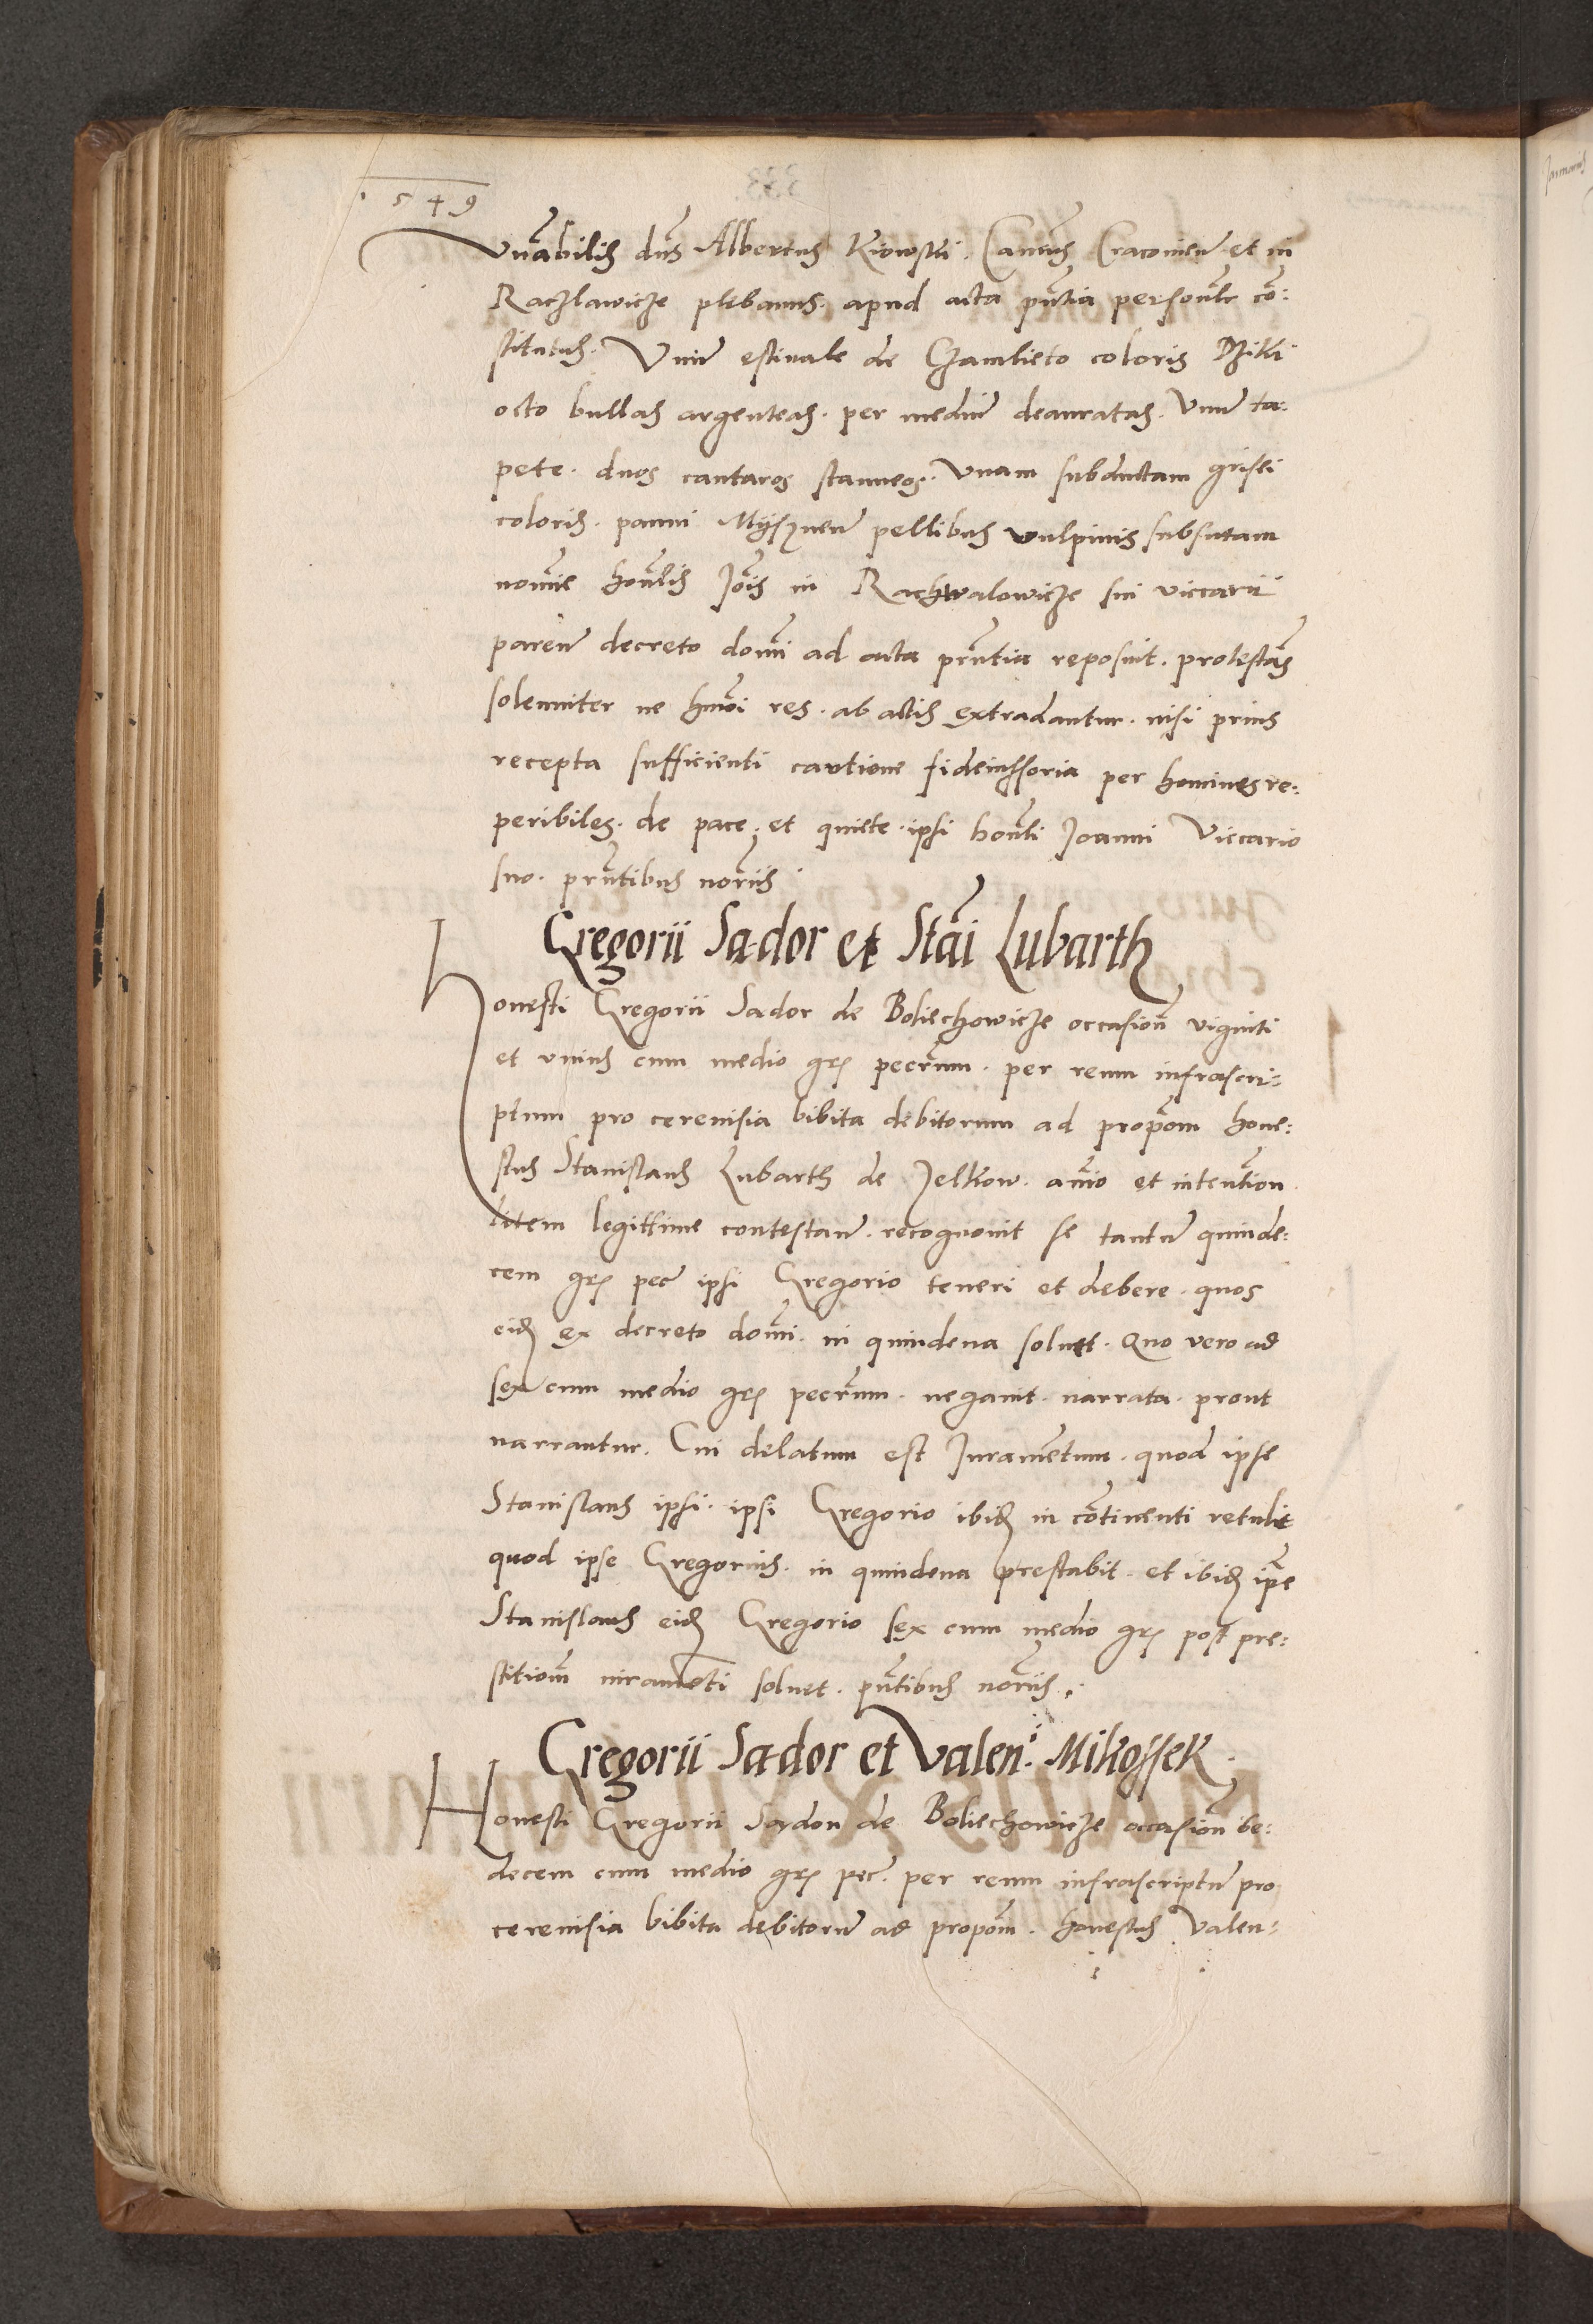 1549
Vnabilis dns Albertus Kiowski. Cantus Cracovien et in
Raczlawicze plebanus. apud acta pntia personalr co:
stitutus. Vnum estivale de Czamlieto coloris Dziki
octo bullas argenteas. per medium deauratas. Vnum ta:
pete. duos cantaros stanneos. Vnam subductam griski
coloris. panni Myssznen pellibus vulpinis subsutam
nomie honlis Jois in Rachwalowicze sui viccarii
paren decreto domi ad acta prntia reposuit. protestans
solenniter ne hmoi res. ab actis extradantur. nisi prius
recepta sufficienti cautione fideiussoria per homines re:
peribiles. de pace. et quiete. ipsi honli Joanni Viccario
suo. prntibus noriis
Gregorii Sador et Stai Lubarth
Honesti Gregorii Sador de Boliechowicze occasion viginti
et vnius cum medio grs pecrum. per reum infrascri:
ptum pro cerevisia bibita debitorum ad propom hone:
stus Stanislaus Lubarth de Jelkow. animo et intention
litem legittime contestan. recognovit se tantum quinde:
cem grs pec ipsi Gregorio teneri et debere. quos
eidem ex decreto domi. in quindena soluet. Quo vero ad
sex cum medio grs pecrum. negavit. narrata. prout
narrantur. Cui delatum est Juramentum. quod ipse
Stanislaus ipsi. ipsi Gregorio ibidem in continenti retulit
quod ipse Gregorius. in quindena prestabit. et ibidem ipse
Stanislaus eidem Gregorio sex cum medio grs post pre:
stitiom iuramenti soluet. pntibus noriis.
Gregorii Sador et Valen. Mikossek.
Honesti Gregorii Sador de Boliechowicze occasion
decem cum medio grs pec. per reum infrascriptum pro
cerevisia bibita debitorum ad propom. honestus Valen: